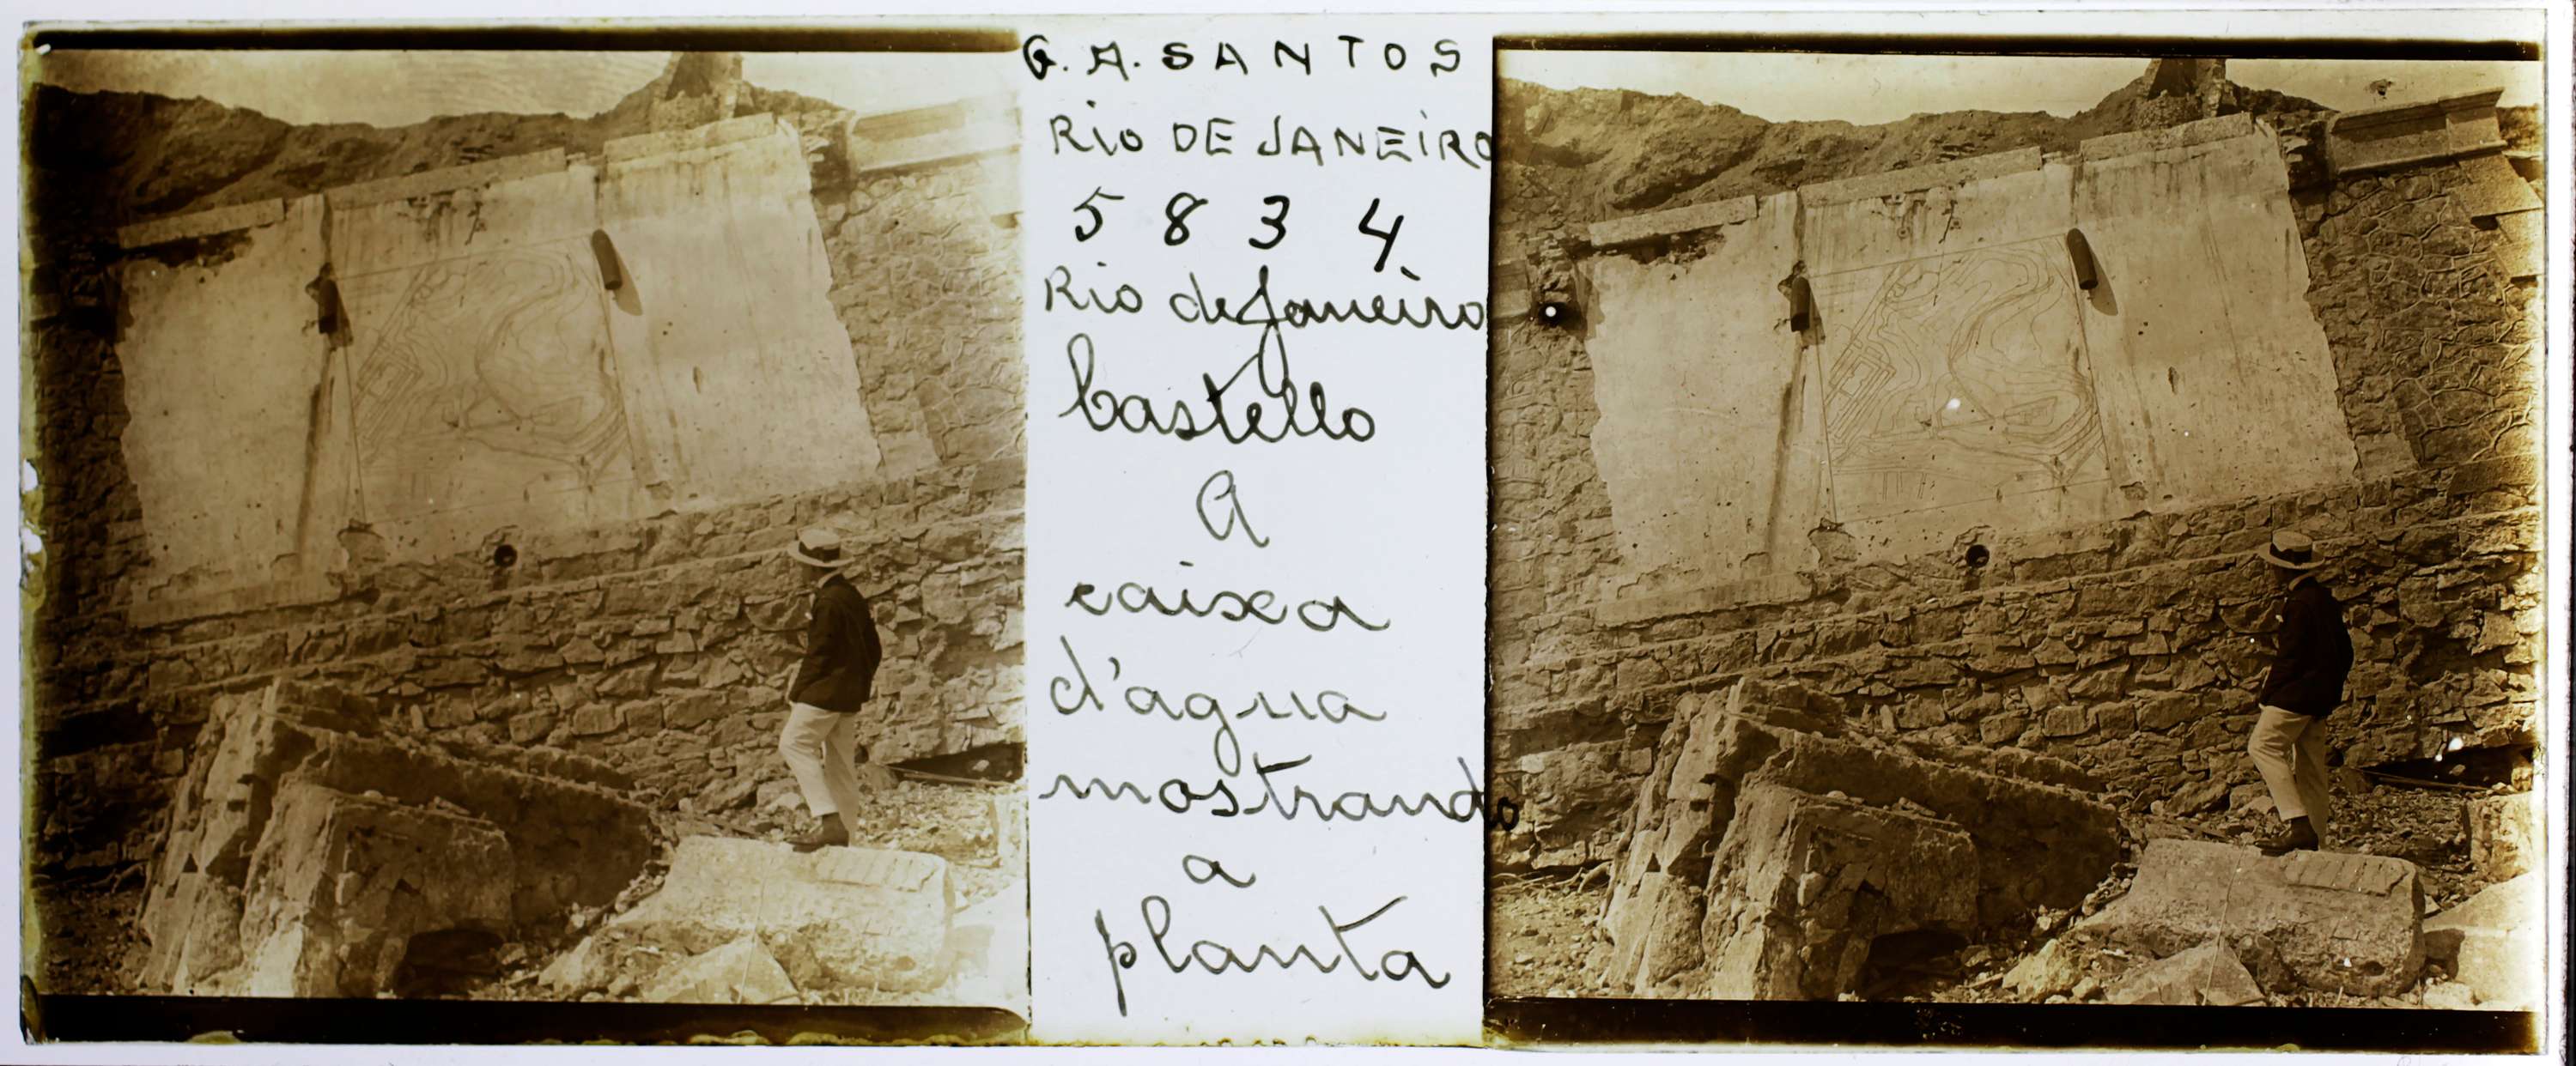 G. A. SANTOS
RIO DE JANEIRO
5834
Rio de Janeiro
Castello
A
caixa
d'agua
mostrando
a
planta